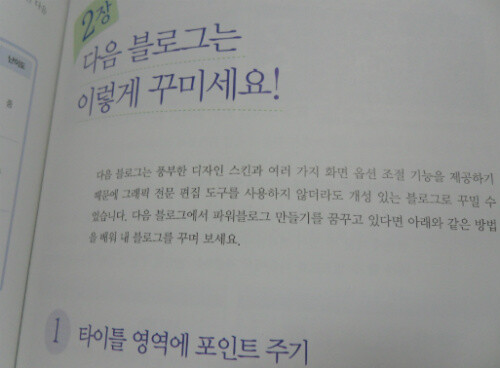 2장
다음 블로그는
이렇게 꾸미세요!
다음 블로그는 풍부한 디자인 스킨과 여러 가지 화면 옵션 조절 기능을 제공하기
때문에 그래픽 전문 편집 도구를 사용하지 않더라도 개성 있는 블로그로 꾸밀 수
있습니다. 다음 블로그에서 파워블로그 만들기를 꿈꾸고 있다면 아래와 같은 방법
을 배워 내 블로그를 꾸며 보세요.
1 타이틀 영역에 포인트 주기